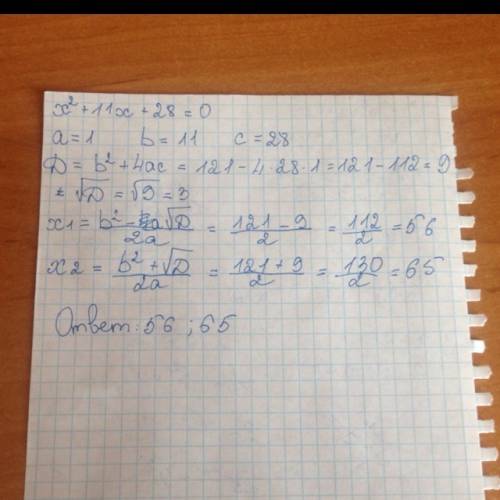 x² + 11x + 28 = 0
a = 1 b = 11 c = 28
D = b² + 4ac = 121 - 4 · 28 · 1 = 121 - 112 = 9
√D = √9 = 3
x1 = (b² - √D)/2a = (121 - 9)/2 = 112/2 = 56
x2 = (b² + √D)/2a = (121 + 9)/2 = 130/2 = 65
Ответ: 56 ; 65